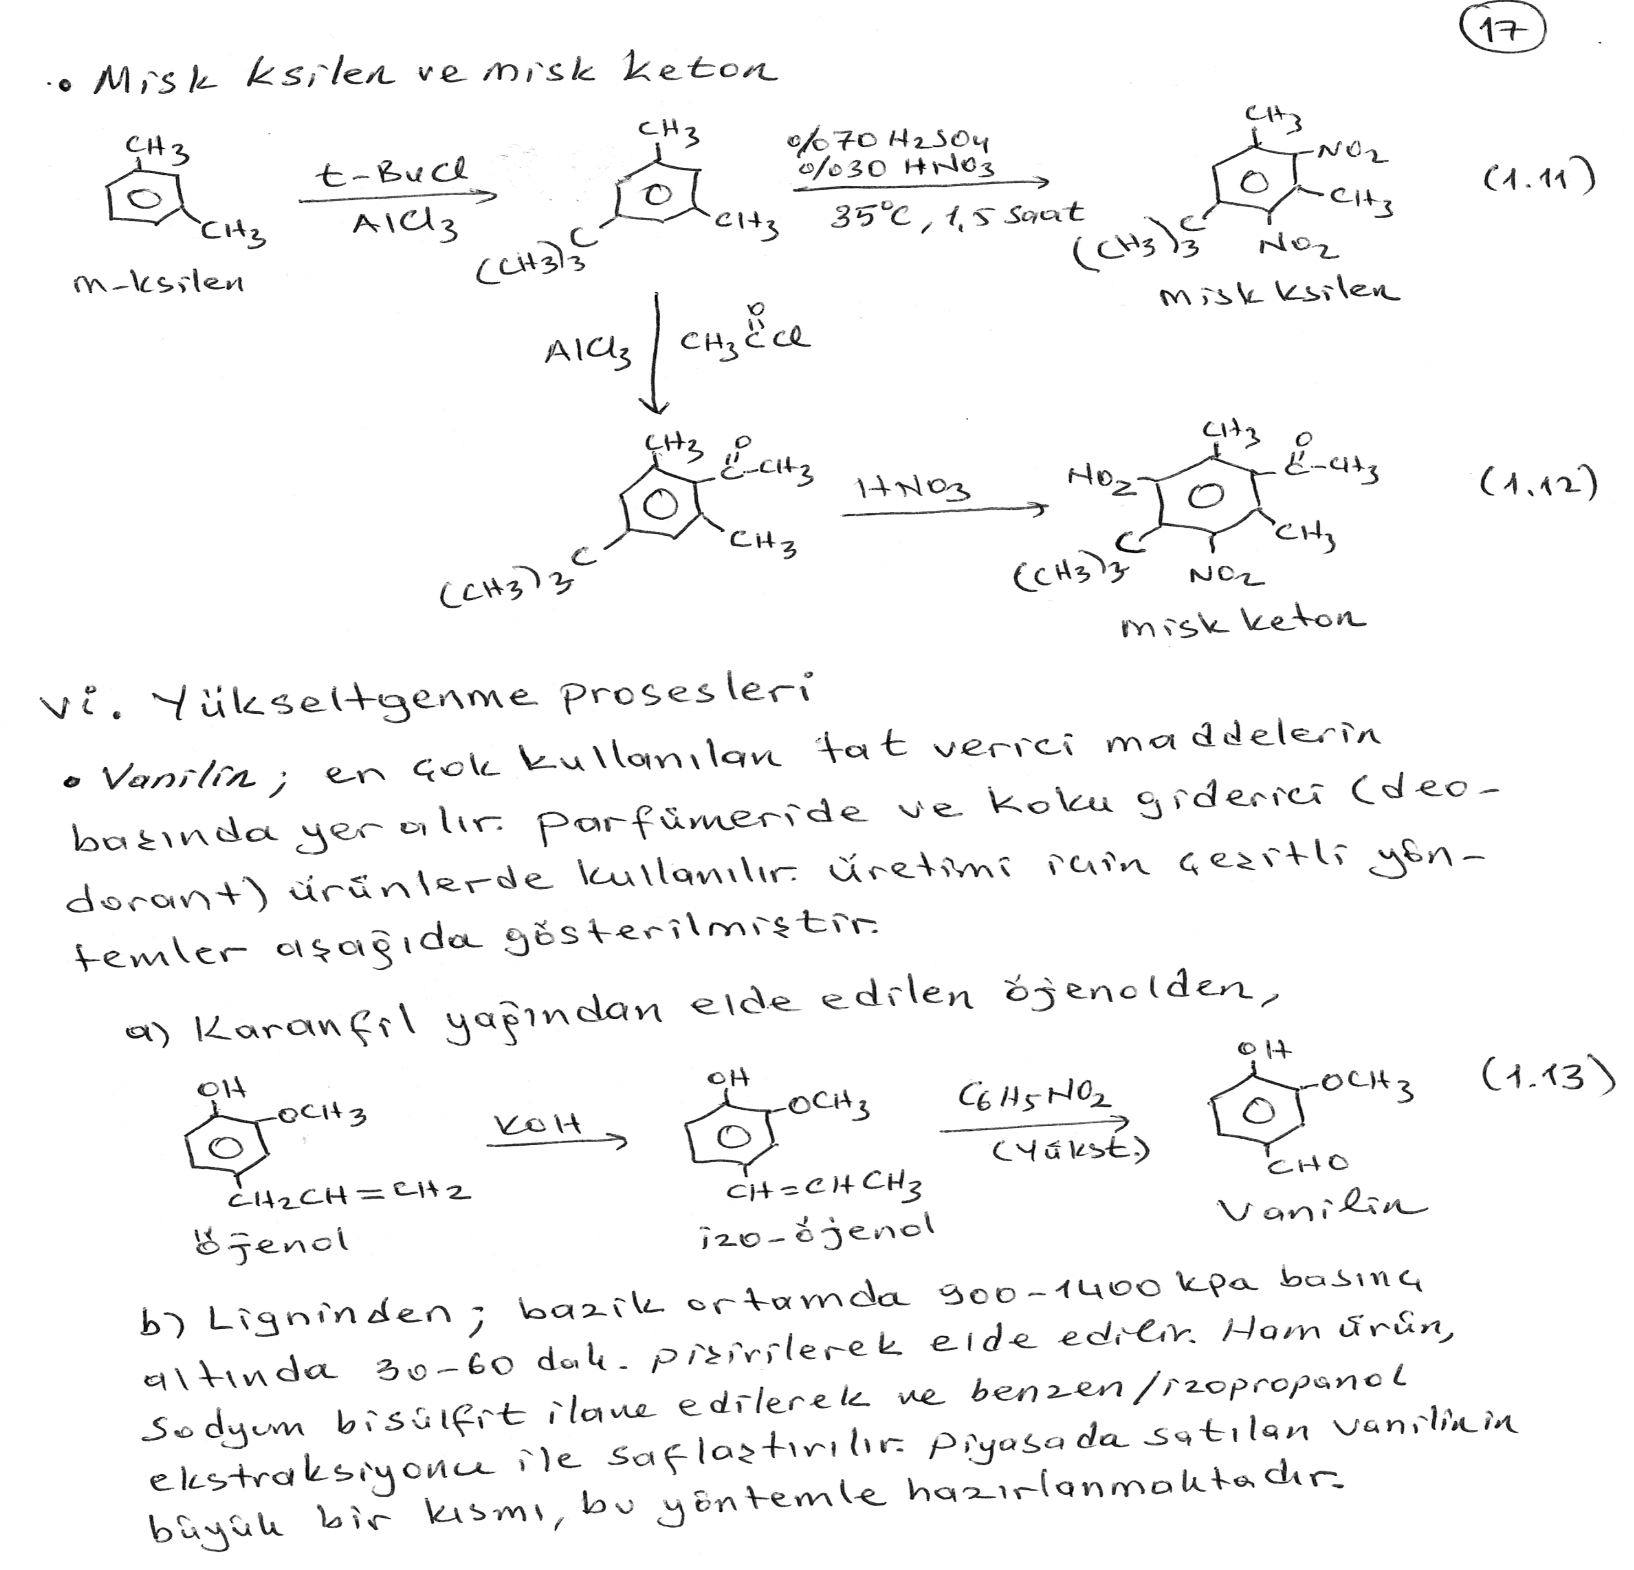 17
• Misk ksilen ve misk keton
CH3 CH3 m-ksilen
t-BuCl AlCl3
CH3 CH3 (CH3)3C
%70 H2SO4
%30 HNO3
35°C, 1,5 saat
CH3 NO2 CH3 NO2 (CH3)3C
misk ksilen
(1.11)
AlCl3 CH3CCl O
CH3 O C-CH3 CH3 (CH3)3C
HNO3
CH3 O C-CH3 NO2 CH3 NO2 (CH3)3C
misk keton
(1.12)
vi. Yükseltgenme prosesleri
• Vanilin; en çok kullanılan tat verici maddelerin
başında yer alır. Parfümeride ve koku giderici (deo-
dorant) ürünlerde kullanılır. Üretimi için çeşitli yön-
temler aşağıda gösterilmiştir.
a) Karanfil yağından elde edilen öjenolden,
OH OCH3 CH2CH=CH2
öjenol
KOH
OH OCH3 CH=CHCH3
izo-öjenol
C6H5NO2
(Yükst.)
OH OCH3 CHO
Vanilin
(1.13)
b) Ligninden; bazik ortamda 900-1400 kpa basınç
altında 30-60 dak. pişirilerek elde edilir. Ham ürün,
sodyum bisülfit ilave edilerek ve benzen/izopropanol
ekstraksiyonu ile saflaştırılır. Piyasada satılan vanilinin
büyük bir kısmı, bu yöntemle hazırlanmaktadır.